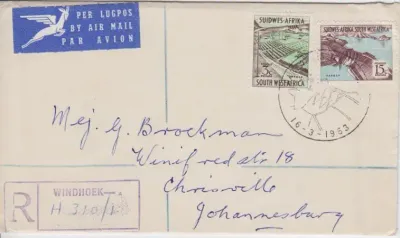 PER LUGPOS
BY AIR MAIL
PAR AVION
SUIDWES-AFRIKA
SOUTH WEST AFRICA
SUIDWES-AFRIKA SOUTH WEST AFRICA
15
16-3-1963
Mej. G. Brockman
Winifredstr 18
Chrisville
Johannesburg
R
WINDHOEK